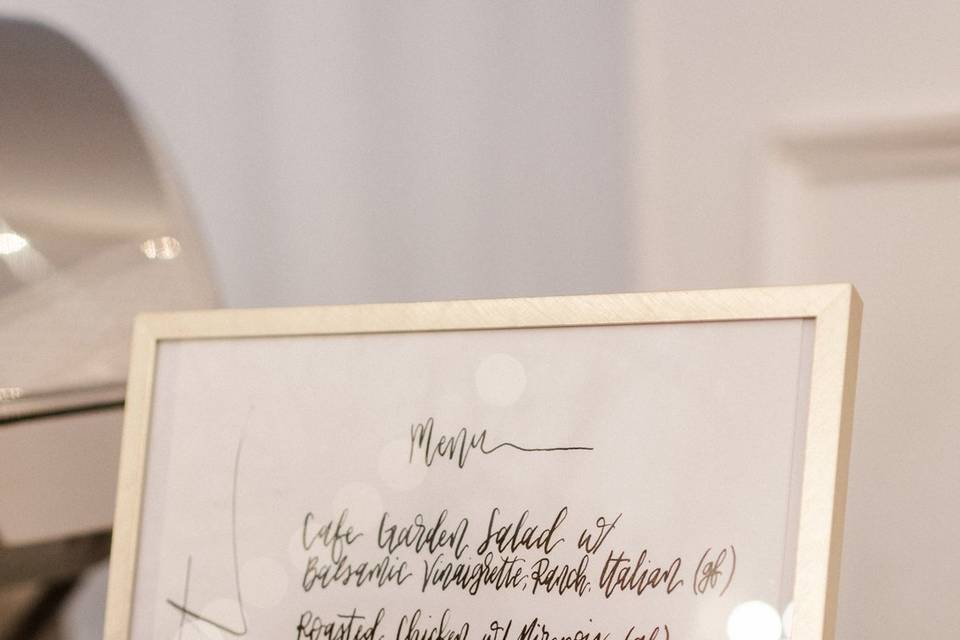 Menu
Cafe Garden Salad w/
Balsamic Vinaigrette, Ranch, Italian (gf)
Roasted Chicken w/ Mirepoix (gf)